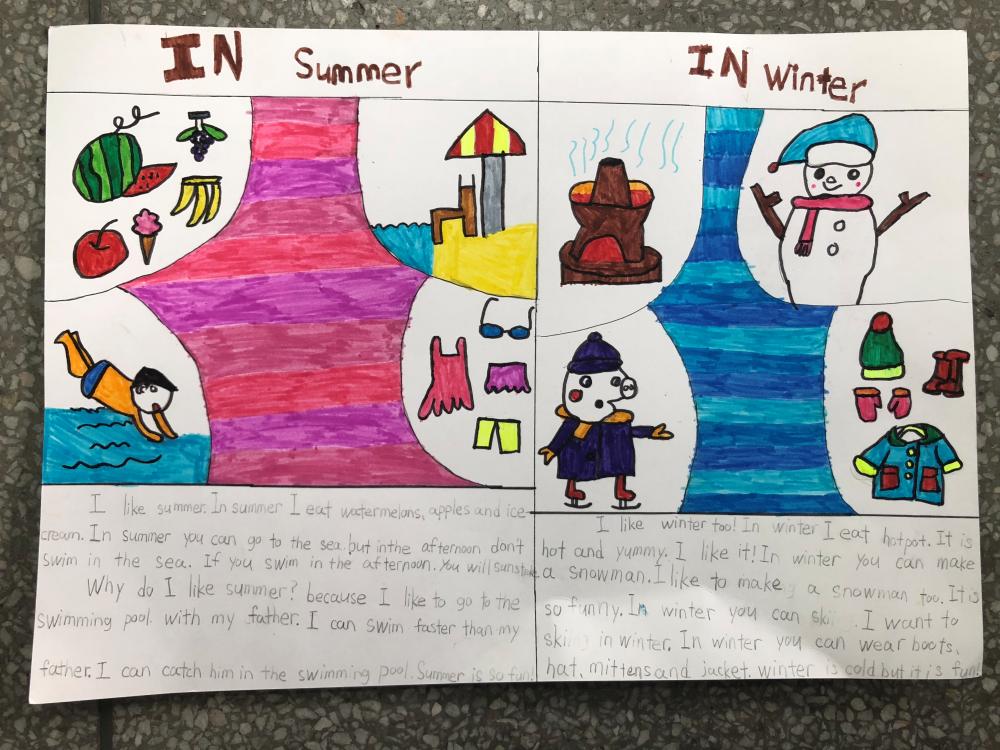 IN Summer
I like summer. In summer I eat watermelons, apples and ice-
cream. In summer you can go to the sea. but inthe afternoon don't
swim in the sea. If you swim in the afternoon. You will sunstroke
Why do I like summer? because I like to go to the
swimming pool. with my father. I can swim faster than my
father. I can catch him in the swimming pool. Summer is so fun!
IN Winter
I like winter too! In winter I eat hotpot. It is
hot and yummy. I like it! In winter you can make
a snowman. I like to make a snowman too. It is
so funny. In winter you can ski . I want to
skiing in winter. In winter you can wear boots,
hat, mittens and jacket. winter is cold but it is fun!